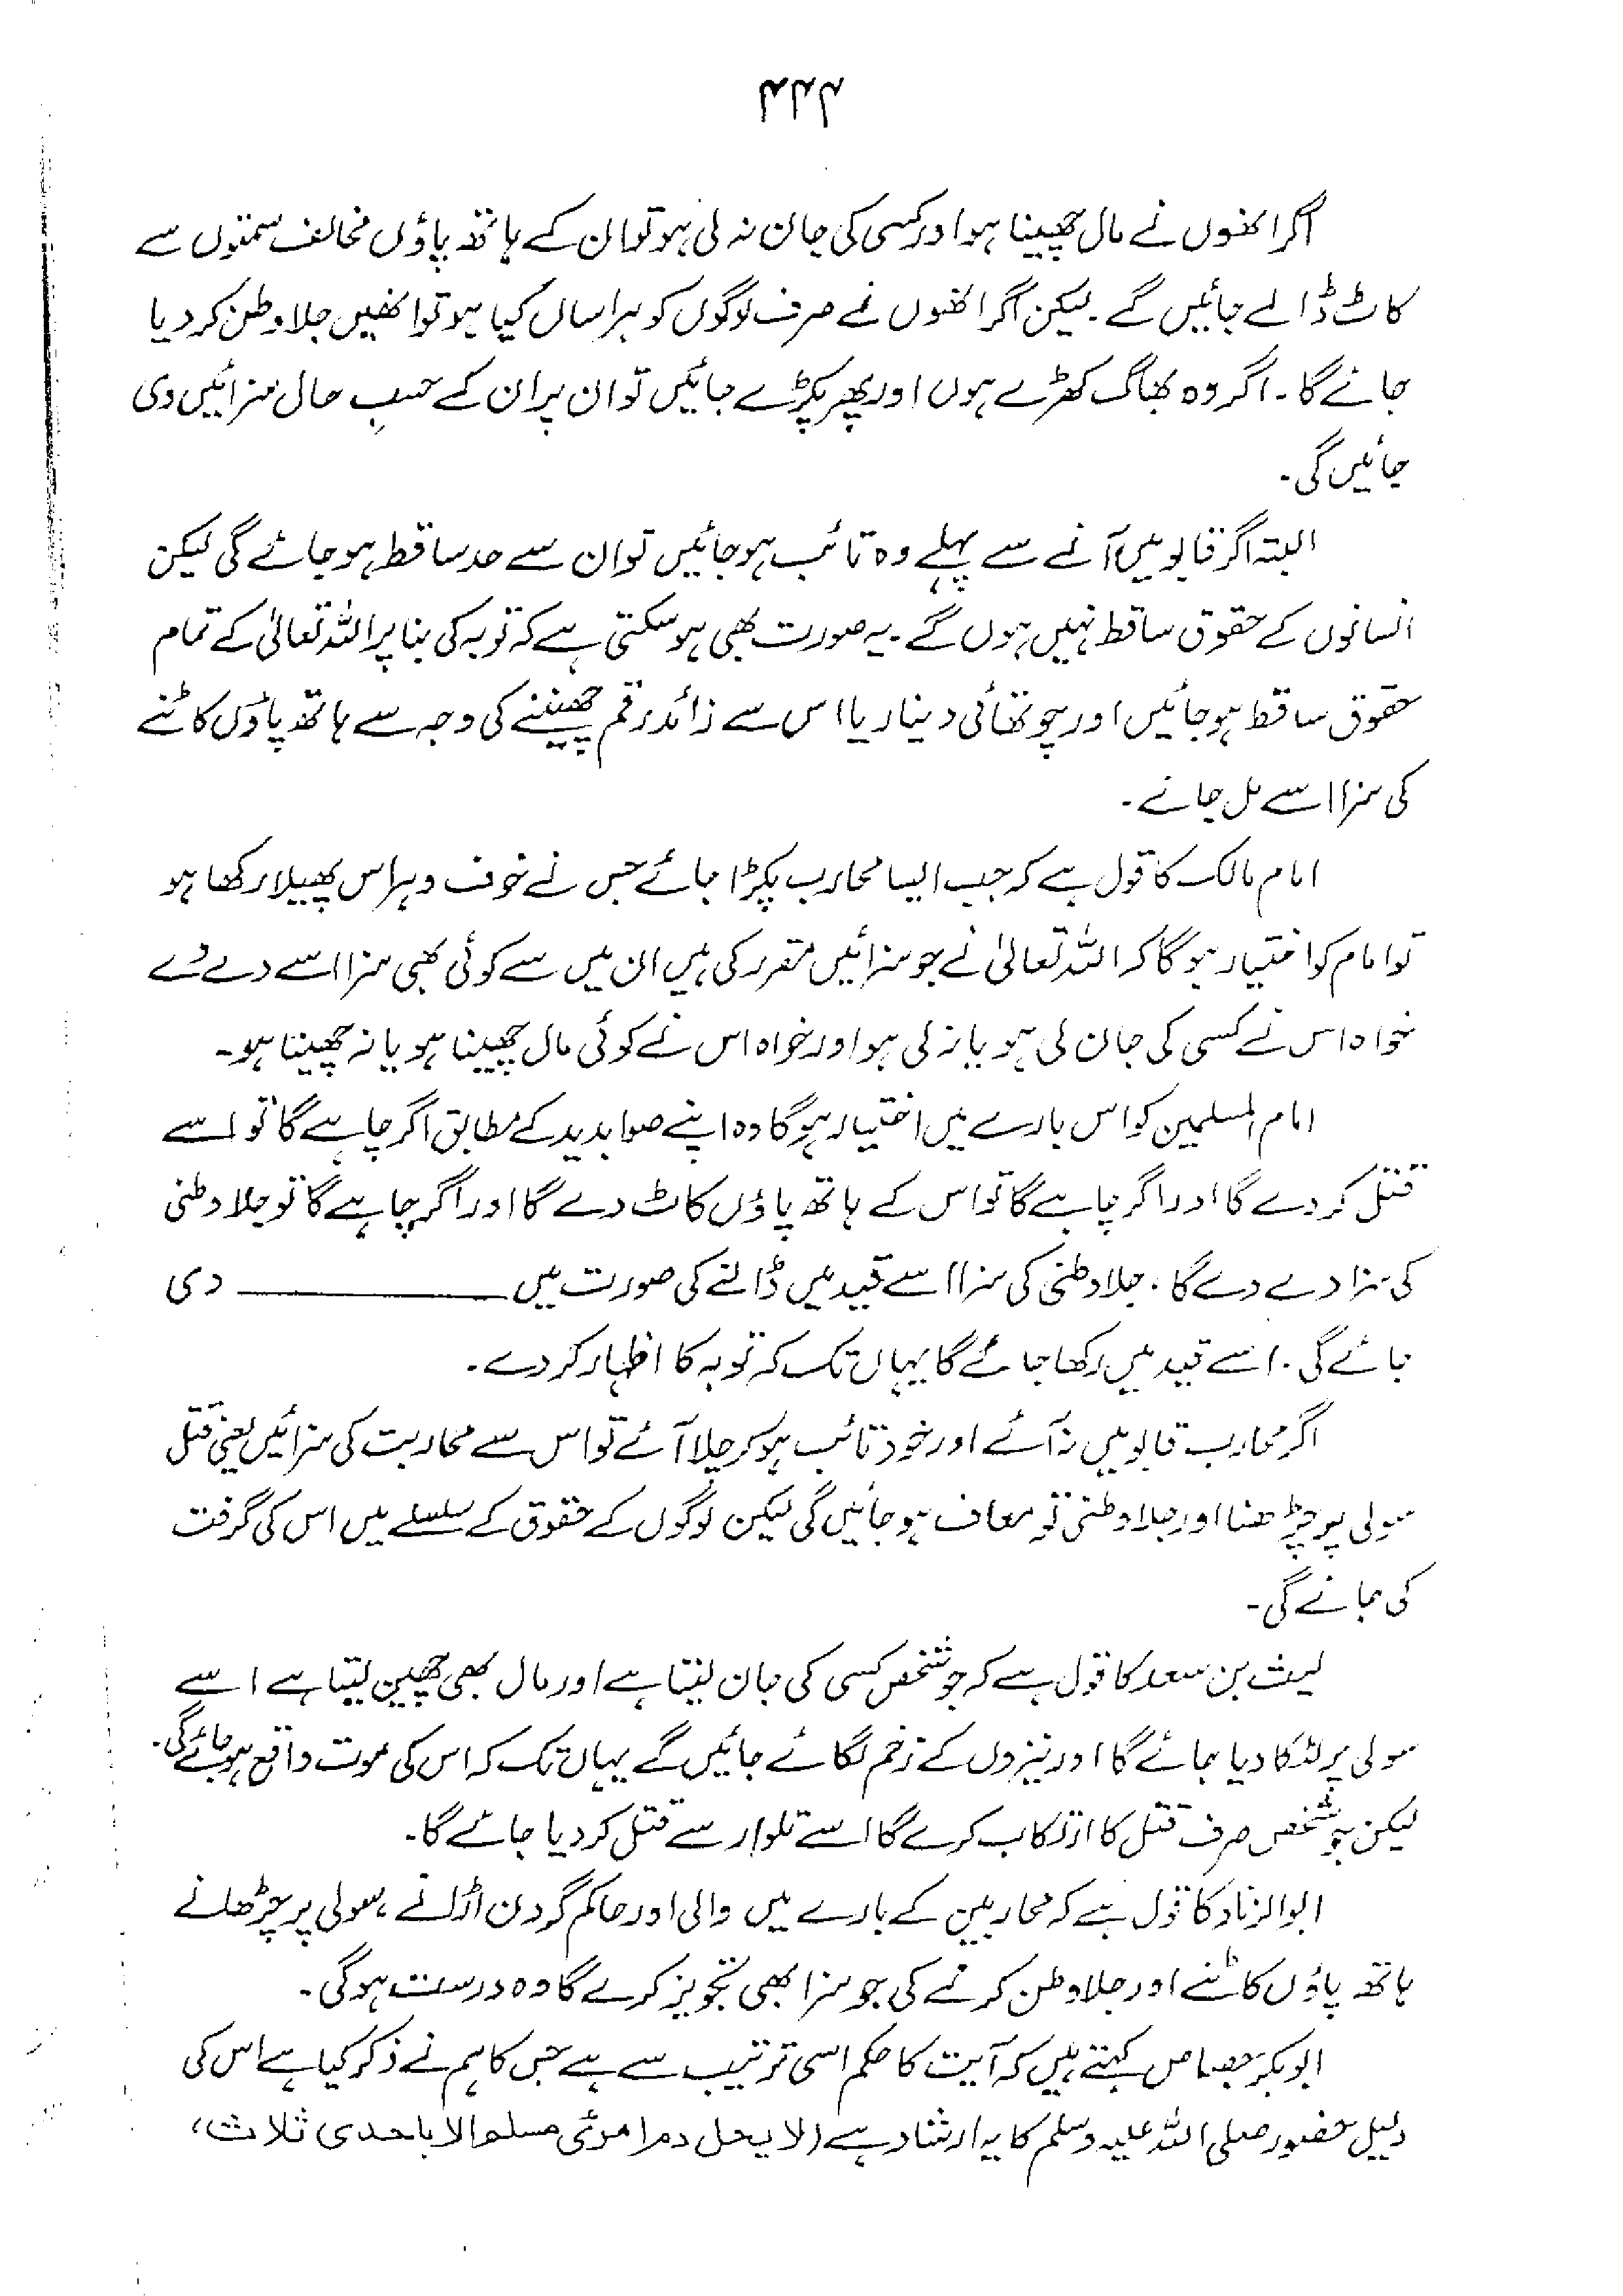 ۴۲۴
اگر انھوں نے مال چھینا ہو اور کسی کی جان نہ لی ہو تو ان کے ہاتھ پاؤں مخالف سمتوں سے
کاٹ ڈالے جائیں گے۔ لیکن اگر انھوں نے صرف لوگوں کو ہراساں کیا ہو تو انھیں جلاوطن کر دیا
جائے گا۔ اگر وہ بھاگ کھڑے ہوں اور پھر پکڑے جائیں تو ان پر ان کے حسبِ حال سزائیں دی
جائیں گی۔
البتہ اگر قابو میں آنے سے پہلے وہ تائب ہو جائیں تو ان سے حد ساقط ہو جائے گی لیکن
انسانوں کے حقوق ساقط نہیں ہوں گے۔ یہ صورت بھی ہو سکتی ہے کہ توبہ کی بنا پر اللہ تعالیٰ کے تمام
حقوق ساقط ہو جائیں اور چوتھائی دینار یا اس سے زائد رقم چھیننے کی وجہ سے ہاتھ پاؤں کاٹنے
کی سزا اسے مل جائے۔
امام مالک کا قول ہے کہ جب ایسا محارب پکڑا جائے جس نے خوف و ہراس پھیلا رکھا ہو
تو امام کو اختیار ہو گا کہ اللہ تعالیٰ نے جو سزائیں مقرر کی ہیں ان میں سے کوئی بھی سزا اسے دے دے
خواہ اس نے کسی کی جان لی ہو یا نہ لی ہو اور خواہ اس نے کوئی مال چھینا ہو یا نہ چھینا ہو۔
امام المسلمین کو اس بارے میں اختیار ہو گا وہ اپنے صوابدید کے مطابق اگر چاہے گا تو اسے
قتل کر دے گا اور اگر چاہے گا تو اس کے ہاتھ پاؤں کاٹ دے گا اور اگر چاہے گا تو جلا وطنی
کی سزا دے دے گا۔ جلا وطنی کی سزا اسے قید میں ڈالنے کی صورت میں ــــــــــــــــ دی
جائے گی۔ اسے قید میں رکھا جائے گا یہاں تک کہ توبہ کا اظہار کر دے۔
اگر محارب قابو میں نہ آئے اور خود تائب ہو کر چلا آئے تو اس سے محاربت کی سزائیں یعنی قتل
سولی پر چڑھنا اور جلا وطنی تو معاف ہو جائیں گی لیکن لوگوں کے حقوق کے سلسلے میں اس کی گرفت
کی جائے گی۔
لیث بن سعد کا قول ہے کہ جو شخص کسی کی جان لیتا ہے اور مال بھی چھین لیتا ہے اسے
سولی پر لٹکا دیا جائے گا اور نیزوں کے زخم لگائے جائیں گے یہاں تک کہ اس کی موت واقع ہو جائے گی۔
لیکن جو شخص صرف قتل کا ارتکاب کرے گا اسے تلوار سے قتل کر دیا جائے گا۔
ابو الزناد کا قول ہے کہ محاربین کے بارے میں والی اور حاکم گردن اڑانے، سولی پر چڑھانے
ہاتھ پاؤں کاٹنے اور جلا وطن کرنے کی جو سزا بھی تجویز کرے گا وہ درست ہو گی۔
ابو بکر جصاص کہتے ہیں کہ آیت کا حکم اسی ترتیب سے ہے جس کا ہم نے ذکر کیا ہے اس کی
دلیل حضور صلی اللہ علیہ وسلم کا یہ ارشاد ہے (لا یحل دم امرئی مسلم الا باحدی ثلاث،